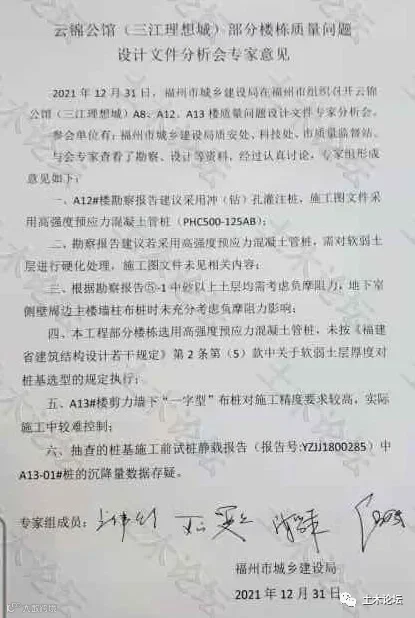 云锦公馆（三江理想城）部分楼栋质量问题
设计文件分析会专家意见
2021年12月31日，福州市城乡建设局在福州市组织召开云锦
公馆（三江理想城）A8、A12、A13楼质量问题设计文件专家分析会。
参会单位有：福州市城乡建设局质安处、科技处、市质量监督站。
与会专家查看了勘察、设计等资料，经过认真讨论，专家组形成
意见如下：
一、A12#楼勘察报告建议采用冲（钻）孔灌注桩，施工图文件采
用高强度预应力混凝土管桩（PHC500-125AB）；
二、勘察报告建议若采用高强度预应力混凝土管桩，需对软弱土
层进行硬化处理，施工图文件未见相关内容；
三、根据勘察报告⑤-1中砂以上土层均需考虑负摩阻力，地下室
侧壁周边主楼墙柱布桩时未充分考虑负摩阻力影响；
四、本工程部分楼栋选用高强度预应力混凝土管桩，未按《福建
省建筑结构设计若干规定》第2条第（5）款中关于软弱土层厚度对
桩基选型的规定执行；
五、A13#楼剪力墙下“一字型”布桩对施工精度要求较高，实际
施工中较难控制；
六、抽查的桩基施工前试桩静载报告（报告号:YZJJ1800285）中
A13-01#桩的沉降量数据存疑。
专家组成员：
福州市城乡建设局
2021年12月31日
土木论坛